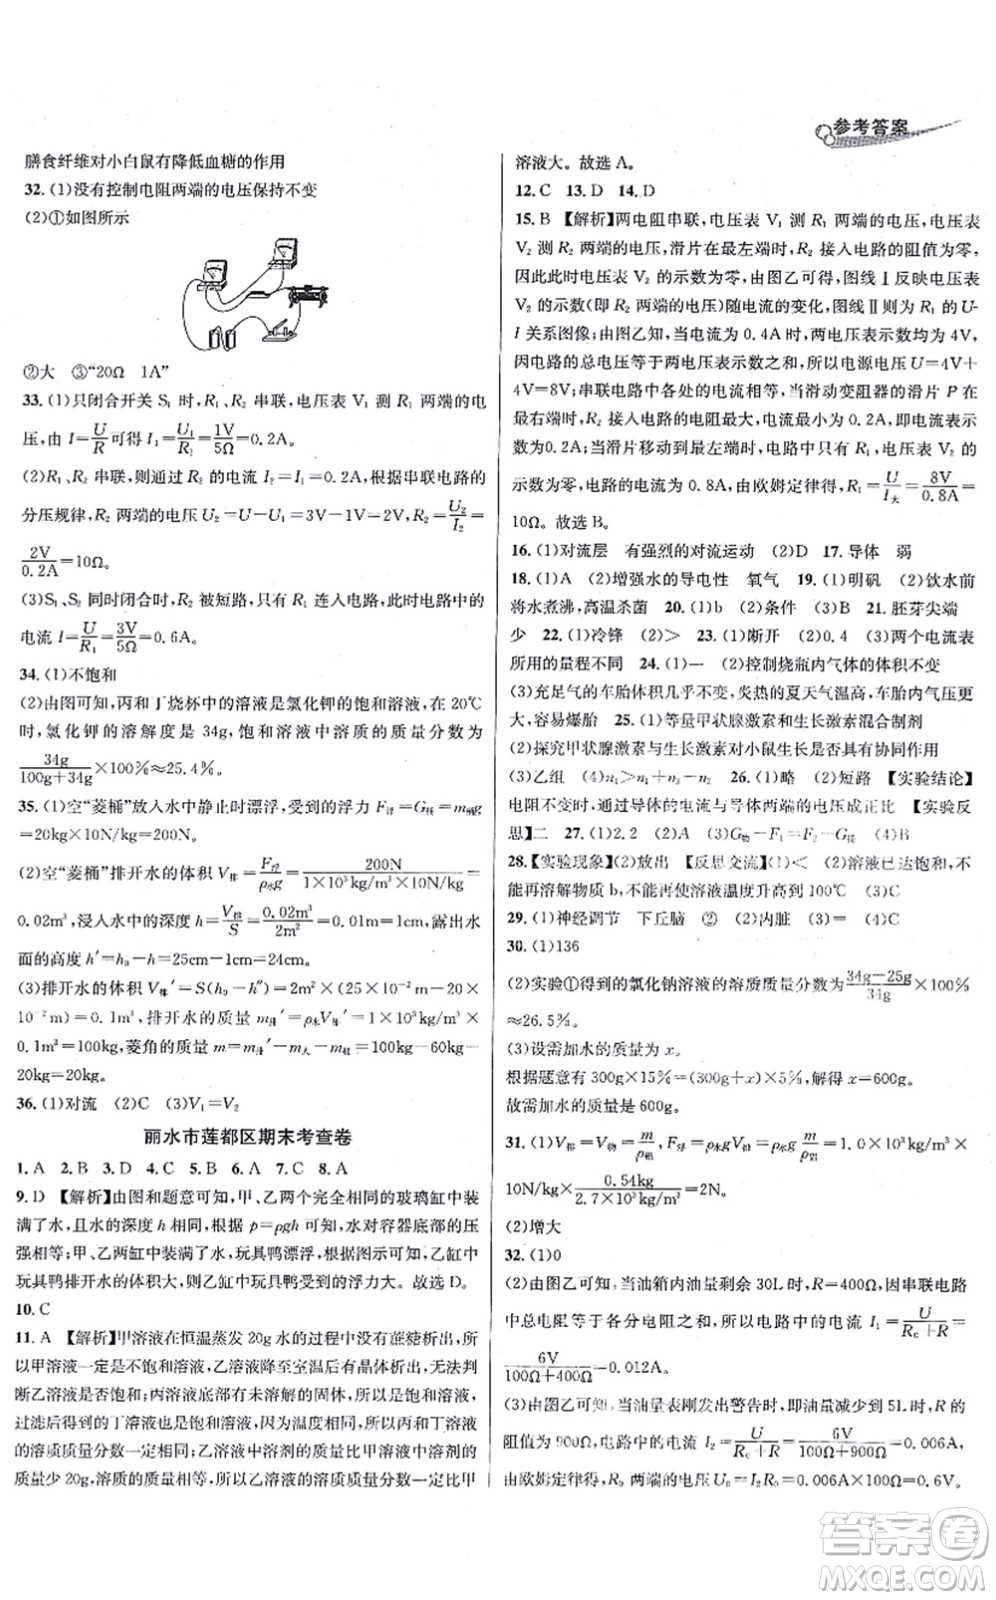 参考答案
膳食纤维对小白鼠有降低血糖的作用
32.(1)没有控制电阻两端的电压保持不变
(2)①如图所示
②大　③“20Ω　1A”
33.(1)只闭合开关 S₁ 时,R₁、R₂ 串联,电压表 V₁ 测 R₁ 两端的电
压,由 I=U/R 可得 I=U₁/R₁=1V/5Ω=0.2A。
(2)R₁、R₂ 串联,则通过 R₂ 的电流 I₂=I=0.2A,根据串联电路的
分压规律,R₂ 两端的电压 U₂=U-U₁=3V-1V=2V,R₂=U₂/I₂=
2V/0.2A=10Ω。
(3)S₁、S₂ 同时闭合时,R₂ 被短路,只有 R₁ 连入电路,此时电路中的
电流 I=U/R₁=3V/5Ω=0.6A。
34.(1)不饱和
(2)由图可知,丙和丁烧杯中的溶液是氯化钾的饱和溶液,在20℃
时,氯化钾的溶解度是34g,溶液中溶质的质量分数为
34g/(100g+34g)×100%≈25.4%。
35.(1)空“菱桶”放入水中静止时漂浮,受到的浮力 F浮=G桶=m桶g
=20kg×10N/kg=200N。
(2)空“菱桶”排开水的体积 V排=F浮/(ρ水g)=200N/(1×10³kg/m³×10N/kg)=
0.02m³,浸入水中的深度 h=V排/S=0.02m³/2m²=0.01m=1cm,露出水
面的高度 h′=h₀-h=25cm-1cm=24cm。
(3)排开水的体积 V排′=S(h₀-h″)=2m²×(25×10⁻²m-20×
10⁻²m)=0.1m³,排开水的质量 m排′=ρ水V排′=1×10³kg/m³×
0.1m³=100kg,菱角的质量 m=m排′-m人-m桶=100kg-60kg-
20kg=20kg。
36.(1)对流　(2)C　(3)V₁=V₂
丽水市莲都区期末考查卷
1.A　2.B　3.D　4.C　5.B　6.A　7.C　8.A
9.D　【解析】由图和题意可知,甲、乙两个完全相同的玻璃缸中装
满了水,且水的深度 h 相同,根据 p=ρgh 可知,水对容器底部的压
强相等;甲、乙两缸中装满了水,玩具鸭漂浮,由图可看出,乙缸中
玩具鸭排开水的体积大,则乙缸中玩具鸭受到的浮力大。故选 D。
10.C
11.A　【解析】甲溶液在恒温蒸发20g水的过程中没有蔗糖析出,所
以甲溶液一定是不饱和溶液,乙溶液冷却至室温后有晶体析出,无法判
断乙溶液是否饱和;丙溶液底部有未溶解的固体,所以是饱和溶液,
过滤后得到的丁溶液也是饱和溶液,因为温度相同,所以丙和丁溶液
的溶质质量分数一定相同;乙溶液中溶剂的质量比甲溶液中溶剂的
质量少20g,溶质的质量相同,所以乙溶液的溶质质量分数一定比甲
溶液大。故选 A。
12.C　13.D　14.D
15.B　【解析】两电阻串联,电压表 V₁ 测 R₁ 两端的电压,电压表
V₂ 测 R₂ 两端的电压,滑片在最左端时,R₂ 接入电路的阻值为零,
因此此时电压表 V₂ 的示数为零,由图乙可得,图线Ⅰ反映电压表
V₂ 的示数(即 R₂ 两端的电压)随电流的变化,图线Ⅱ则为 R₁ 的 U-
I 关系图像;由图乙知,当电流为0.4A时,两电压表示数均为4V,
因电路的总电压等于两电压表示数之和,所以电源电压 U=4V+
4V=8V;串联电路中各处的电流相等,当滑动变阻器的滑片 P 在
最右端时,R₂ 接入电路的电阻最大,电流最小为0.2A,即电流表示
数为0.2A;当滑片移动到最左端时,电路中只有 R₁,电压表 V₂ 的
示数为零,电路的电流为0.8A,由欧姆定律得,R₁=U/I大=8V/0.8A=
10Ω。故选 B。
16.(1)对流层　有强烈的对流运动　(2)D　17.导体　弱
18.(1)A　(2)增强水的导电性　氧气　19.(1)明矾　(2)饮水前
将水煮沸,高温杀菌　20.(1)b　(2)条件　(3)B　21.胚芽尖端
少　22.(1)冷锋　(2)>　23.(1)断开　(2)0.4　(3)两个电流表
所用的量程不同　24.(1)一　(2)控制烧瓶内气体的体积不变
(3)充足气的车胎体积几乎不变,炎热的夏天气温高,车胎内气压更
大,容易爆胎　25.(1)等量甲状腺激素和生长激素混合制剂
(2)探究甲状腺激素与生长激素对小鼠生长是否具有协同作用
(3)乙组　(4)n₁>n₄>n₃-n₂　26.(1)略　(2)短路　【实验结论】
电阻不变时,通过导体的电流与导体两端的电压成正比　【实验反
思】二　27.(1)2.2　(2)A　(3)G物-F₁=F₂-G桶　(4)B
28.【实验现象】(2)放出　【反思交流】(1)<　(2)溶液已达饱和,不
能再溶解物质 b,不能再使溶液温度升高到100℃　(3)C
29.(1)神经调节　下丘脑　②　(2)内脏　(3)=　(4)C
30.(1)136
(2)实验①得到的氯化钠溶液的溶质质量分数为(34g-25g)/34g×100%
≈26.5%。
(3)设需加水的质量为 x。
根据题意有300g×15%=(300g+x)×5%,解得 x=600g。
故需加水的质量是600g。
31.(1)V排=V物=m/ρ铝,F浮=ρ水gV排=ρ水g m/ρ铝=1.0×10³kg/m³×
10N/kg×0.54kg/(2.7×10³kg/m³)=2N。
(2)增大
32.(1)0
(2)由图乙可知,当油箱内油量剩余30L时,R=400Ω,因串联电路
中总电阻等于各分电阻之和,所以此时电路中的电流 I₁=U/(R₀+R)=
6V/(100Ω+400Ω)=0.012A。
(3)由图乙可知,当油量表发出警告时,即油量减少到5L时,R 的
阻值为900Ω,电路中的电流 I₂=U/(R₀+R)=6V/(100Ω+900Ω)=0.006A,
由欧姆定律得,R₀ 两端的电压 U₀=I₂R₀=0.006A×100Ω=0.6V。
答案圈
MXQE.COM